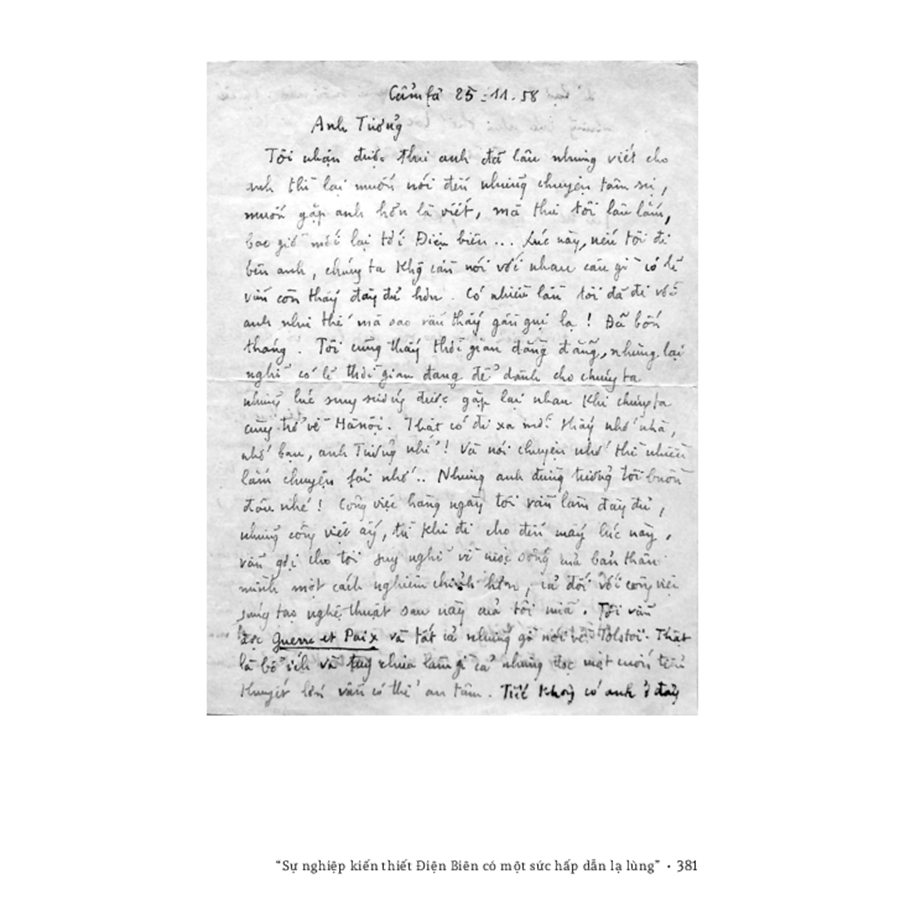 Cẩmfả 25-11-58
Anh Tường
Tôi nhận được thư anh đã lâu nhưng viết cho
anh thì lại muốn nói đến những chuyện tâm sự,
muốn gặp anh hơn là viết, mà thư tới lâu lắm,
bao giờ mới lại tới Điện biên... Lúc này, nếu tôi đi
bên anh, chúng ta khg cần nói với nhau câu gì có lẽ
vẫn còn thấy đầy đủ hơn. Có nhiều lần tôi đã đi với
anh như thế mà sao vẫn thấy gần gụi lạ! Đã bốn
tháng. Tôi cũng thấy thời gian đằng đẵng, nhưng lại
nghĩ có lẽ thời gian đang để dành cho chúng ta
những lúc sung sướng được gặp lại nhau khi chúng ta
cùng trở về Hànội. Thật có đi xa mới thấy nhớ nhà,
nhớ bạn, anh Tường nhỉ! Và nói chuyện nhớ thì nhiều
lắm chuyện fải nhớ.. Nhưng anh đừng tưởng tôi buồn
đâu nhé! Công việc hàng ngày tôi vẫn làm đầy đủ,
những công việc ấy, từ khi đi cho đến mấy lúc này,
vẫn gợi cho tôi suy nghĩ về cuộc sống của bản thân
mình một cách nghiêm chỉnh hơn, cả đối với công việc
sáng tạo nghệ thuật sau này của tôi nữa. Tôi vẫn
đọc Guerre et Paix và tất cả những gì nói về Tolstoi. Thật
là bổ ích và tuy chưa làm gì cả nhưng đọc một cuốn tiểu
thuyết lớn vẫn có thể an tâm. Tiếc không có anh ở đây
“Sự nghiệp kiến thiết Điện Biên có một sức hấp dẫn lạ lùng” • 381